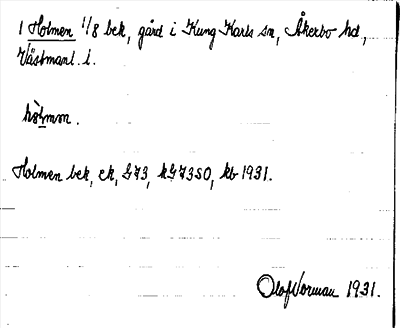 1 Holmen 1/8 bek, gård i Kung Karls sn, Åkerbo hd,
Västmanl. l.
hòlmən.
Holmen bek, ek, G73, kG73SO, kb 1931.
Olof Norman 1931.